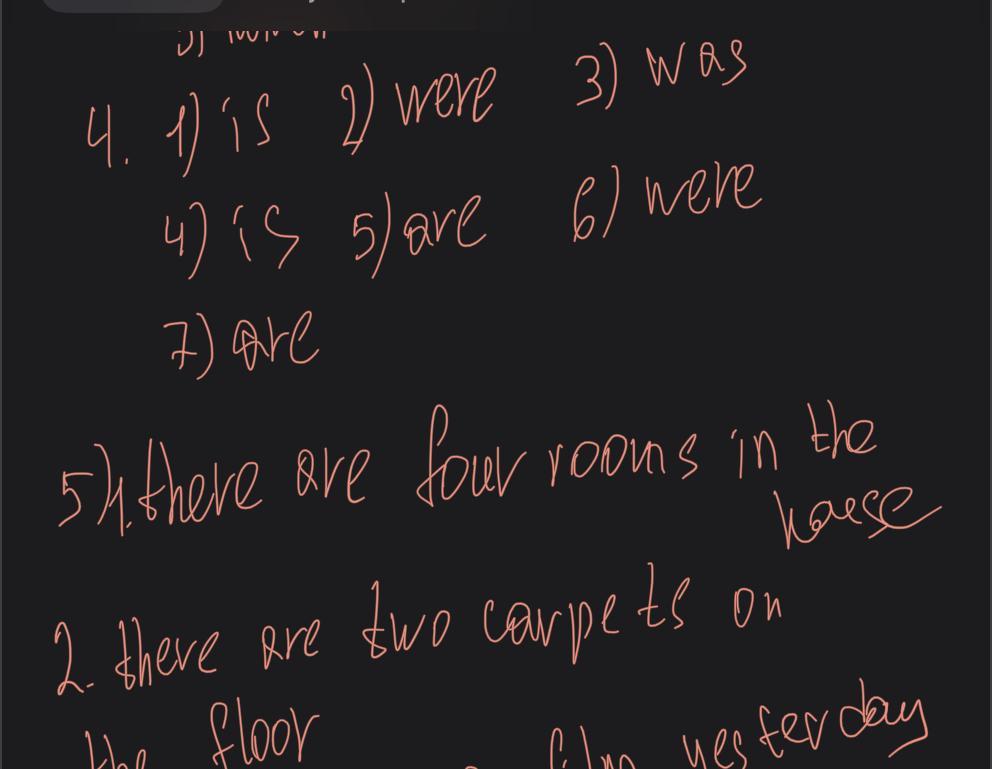 4. 1) is 2) were 3) was
4) is 5) are 6) were
7) are
5) 1. there are four rooms in the
house
2. there are two carpets on
the floor
film yesterday